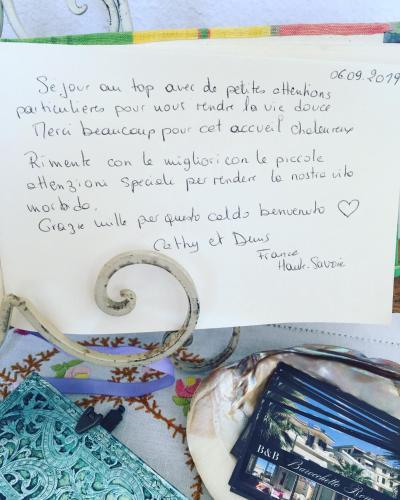 06.09.2019
Sejour au top avec de petites attentions
particulières pour nous rendre la vie douce
Merci beaucoup pour cet accueil chaleureux
Rimente con le migliori con le piccole
attenzioni speciale per rendere la nostra vita
morbido.
Grazie mille per questo caldo benvenuto ♡
Cathy et Denis
France
Haute-Savoie
B&B
Barocchetto